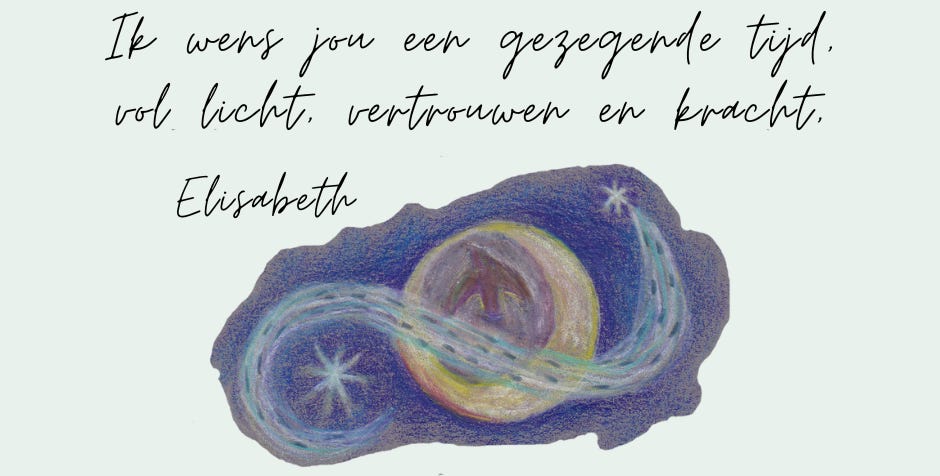 Ik wens jou een gezegende tijd,
vol licht, vertrouwen en kracht,
Elisabeth